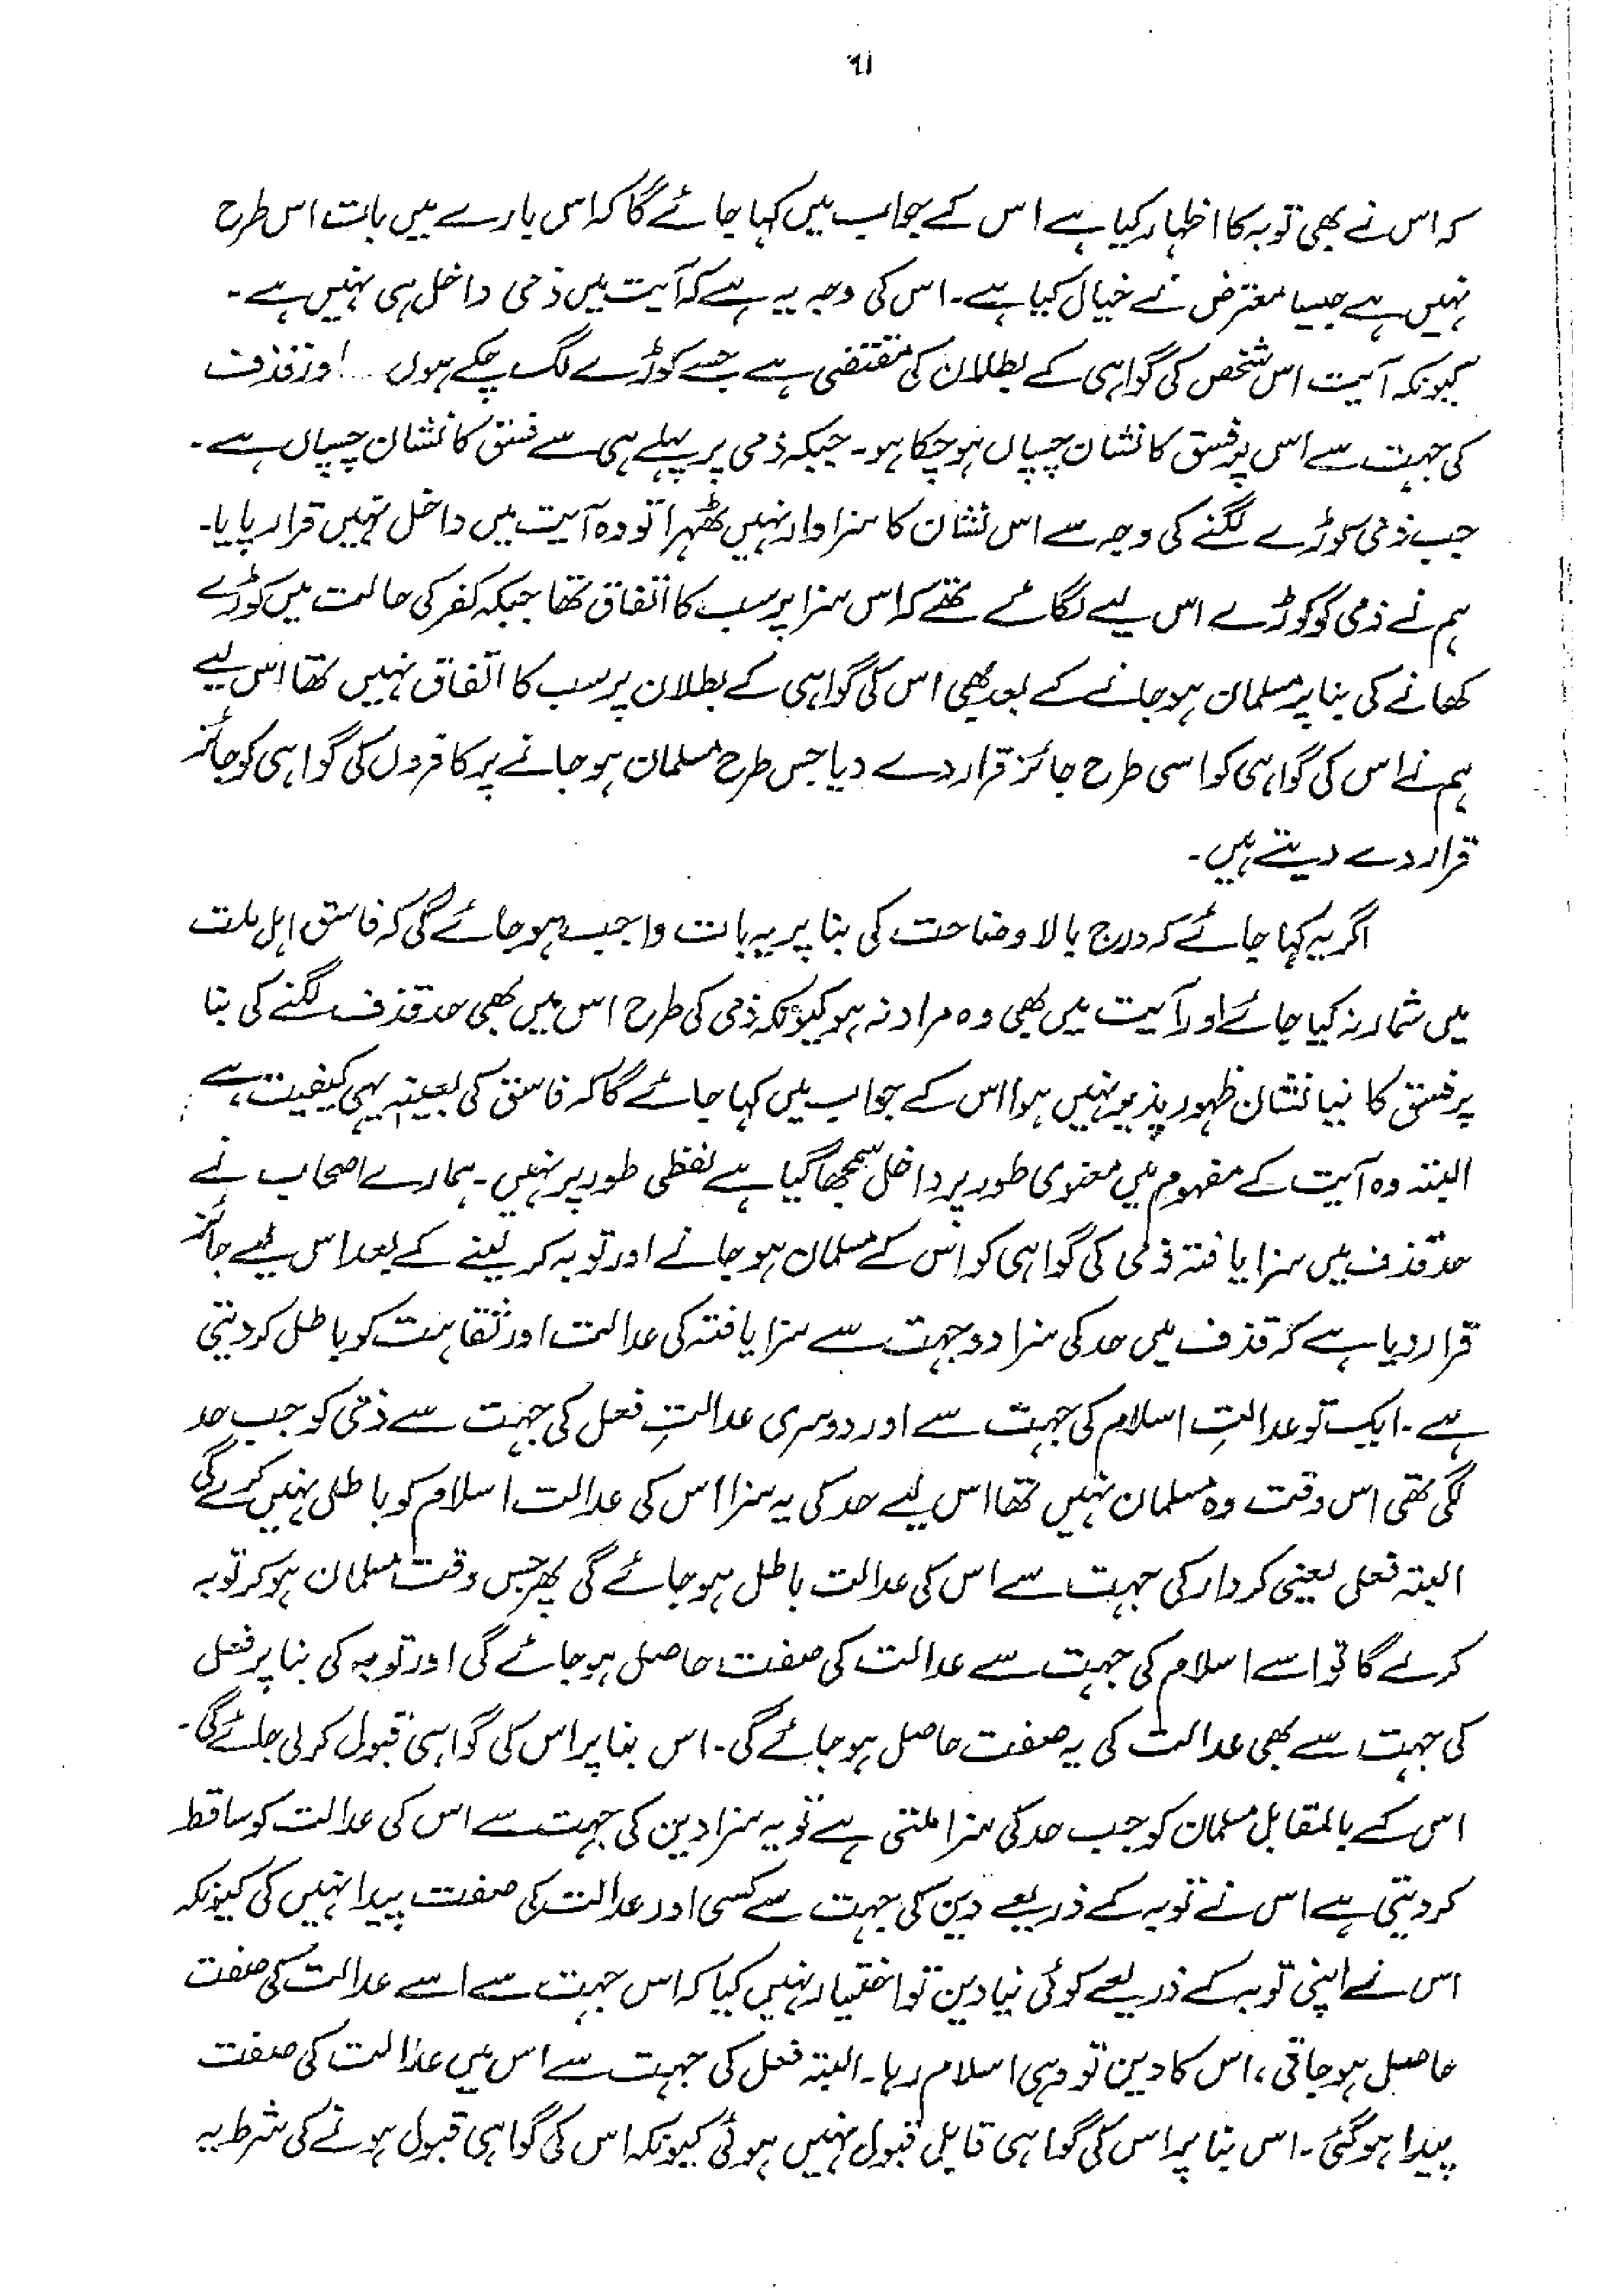 ۶۱
کہ اس نے بھی توبہ کا اظہار کیا ہے اس کے جواب میں کہا جائے گا کہ اس بارے میں بات اس طرح
نہیں ہے جیسا معترض نے خیال کیا ہے۔ اس کی وجہ یہ ہے کہ آیت میں ذمی داخل ہی نہیں ہے۔
کیونکہ آیت اس شخص کی گواہی کے بطلان کی مقتضی ہے جسے کوڑے لگ چکے ہوں اور قذف
کی جہت سے اس پر فسق کا نشان چسپاں ہو چکا ہو۔ جبکہ ذمی پر پہلے ہی سے فسق کا نشان چسپاں ہے۔
جب ذمی کوڑے لگنے کی وجہ سے اس نشان کا سزاوار نہیں ٹھہرا تو وہ آیت میں داخل نہیں قرار پایا۔
ہم نے ذمی کو کوڑے اس لیے لگائے تھے کہ اس سزا پر سب کا اتفاق تھا جبکہ کفر کی حالت میں کوڑے
کھانے کی بنا پر مسلمان ہو جانے کے بعد بھی اس کی گواہی کے بطلان پر سب کا اتفاق نہیں تھا اس لیے
ہم نے اس کی گواہی کو اسی طرح جائز قرار دے دیا جس طرح مسلمان ہو جانے پر کافروں کی گواہی کو جائز
قرار دے دیتے ہیں۔
اگر یہ کہا جائے کہ درج بالا وضاحت کی بنا پر یہ بات واجب ہو جائے گی کہ فاسق اہل ملت
میں شمار نہ کیا جائے اور آیت میں بھی وہ مراد نہ ہو کیونکہ ذمی کی طرح اس میں بھی حد قذف لگنے کی بنا
پر فسق کا نیا نشان ظہور پذیر نہیں ہوا اس کے جواب میں کہا جائے گا کہ فاسق کی بعینہ یہی کیفیت ہے
البتہ وہ آیت کے مفہوم میں معنوی طور پر داخل سمجھا گیا ہے لفظی طور پر نہیں۔ ہمارے اصحاب نے
حد قذف میں سزا یافتہ ذمی کی گواہی کو اس کے مسلمان ہو جانے اور توبہ کر لینے کے بعد اس لیے جائز
قرار دیا ہے کہ قذف میں حد کی سزا دو جہت سے سزا یافتہ کی عدالت اور ثقاہت کو باطل کر دیتی
ہے۔ ایک تو عدالتِ اسلام کی جہت سے اور دوسری عدالتِ فعل کی جہت سے ذمی کو جب حد
لگی تھی اس وقت وہ مسلمان نہیں تھا اس لیے حد کی یہ سزا اس کی عدالت اسلام کو باطل نہیں کرے گی
البتہ فعل یعنی کردار کی جہت سے اس کی عدالت باطل ہو جائے گی پھر جس وقت مسلمان ہو کر توبہ
کرے گا تو اسے اسلام کی جہت سے عدالت کی صفت حاصل ہو جائے گی اور توبہ کی بنا پر فعل
کی جہت سے بھی عدالت کی یہ صفت حاصل ہو جائے گی۔ اس بنا پر اس کی گواہی قبول کر لی جائے گی۔
اس کے بالمقابل مسلمان کو جب حد کی سزا ملتی ہے تو یہ سزا دین کی جہت سے اس کی عدالت کو ساقط
کر دیتی ہے اس نے توبہ کے ذریعے دین کی جہت سے کسی اور عدالت کی صفت پیدا نہیں کی کیونکہ
اس نے اپنی توبہ کے ذریعے کوئی نیا دین تو اختیار نہیں کیا کہ اس جہت سے اسے عدالت کی صفت
حاصل ہو جاتی، اس کا دین تو وہی اسلام رہا۔ البتہ فعل کی جہت سے اس میں عدالت کی صفت
پیدا ہو گئی۔ اس بنا پر اس کی گواہی قابل قبول نہیں ہوئی کیونکہ اس کی گواہی قبول ہونے کی شرط یہ